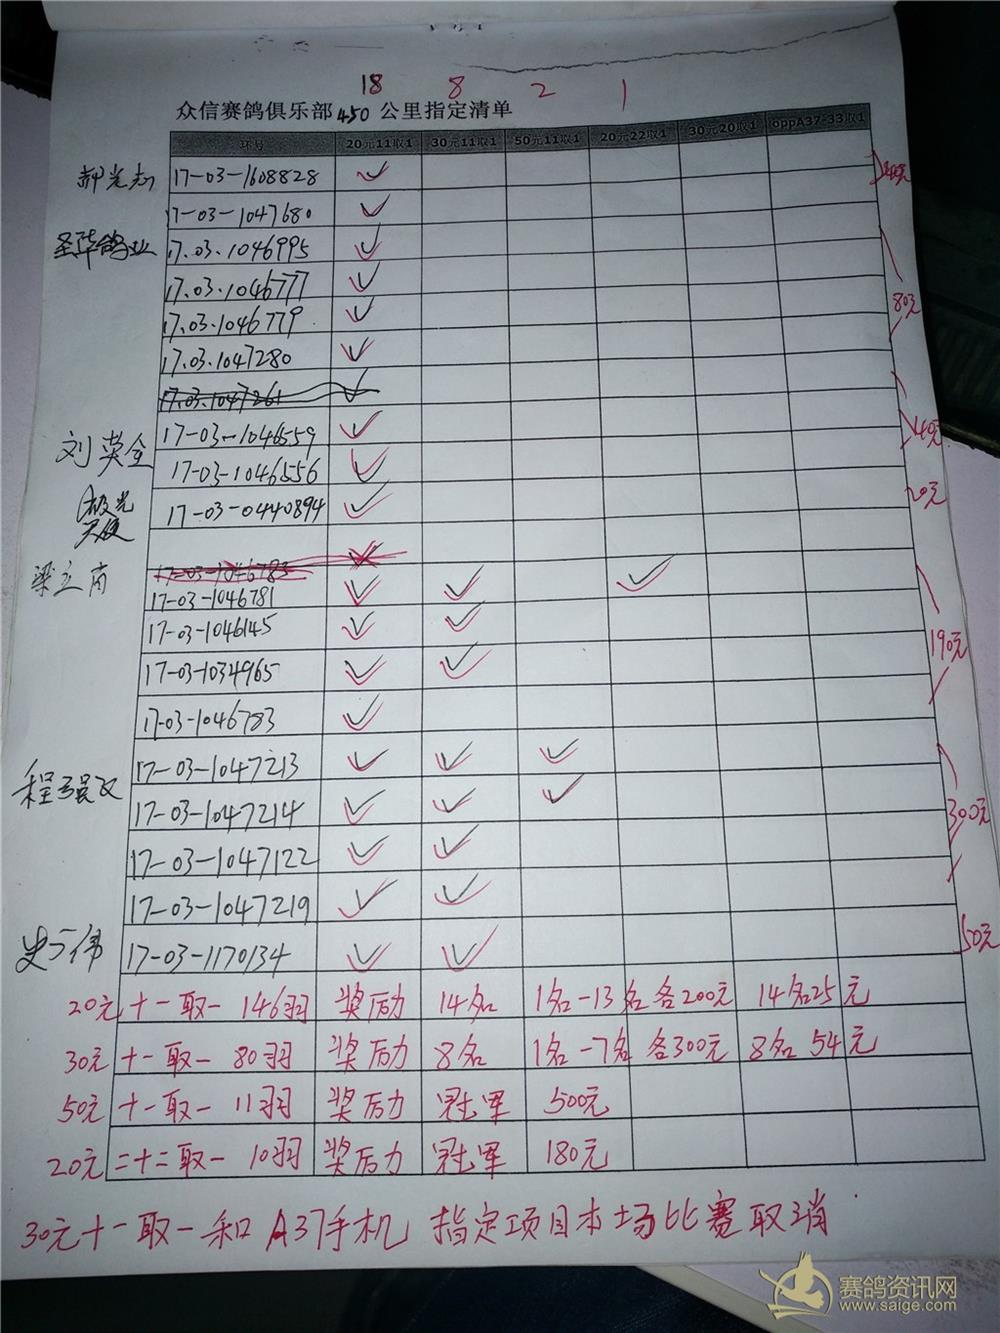 18 8 2 1
众信赛鸽俱乐部450公里指定清单
环号 20元11取1 30元11取1 50元11取1 20元22取1 30元20取1 oppA37-33取1
17-03-1608828 ✓
17-03-1047680 ✓
圣华鸽业 17.03.1046995 ✓
17.03.1046777 ✓
17.03.1046779 ✓ 80元
17.03.1047280 ✓
17.03.1047261 ✓
刘英全 17-03-1046559 ✓ 40元
17-03-1046556 ✓
极光天使 17-03-0440894 ✓ 20元
17-03-1046783
梁立 17-03-1046781 ✓ ✓ ✓
17-03-1046145 ✓ ✓
17-03-1034965 ✓ ✓ 190元
17-03-1046783 ✓
17-03-1047213 ✓ ✓ ✓
程强 17-03-1047214 ✓ ✓ ✓ 300元
17-03-1047122 ✓ ✓
17-03-1047219 ✓ ✓
史 伟 17-03-1170134 ✓ ✓ 50元
20元十一取一 146羽 奖励 14名 1名-13名各200元 14名25元
30元十一取一 80羽 奖励 8名 1名-7名 各300元 8名54元
50元十一取一 11羽 奖励 冠军 500元
20元二十二取一 10羽 奖励 冠军 180元
30元十一取一和A37手机 指定项目本场比赛取消
赛鸽资讯网
www.saige.com